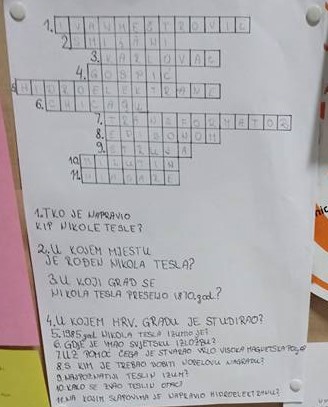 1. IVANMEŠTROVIĆ
2.
3. KARLOVAC
4. GOSPIĆ
5. HIDROELEKTRANE
6. CHICAGU
7. TRANSFORMATOR
8. EDISONOM
9. STRUJA
10. MILUTIN
11. NIAGARE
1. TKO JE NAPRAVIO
KIP NIKOLE TESLE?
2. U KOJEM MJESTU
JE ROĐEN NIKOLA TESLA?
3. U KOJI GRAD SE
NIKOLA TESLA PRESELIO 1870.god.?
4. U KOJEM HRV. GRADU JE STUDIRAO?
5. 1985.god. NIKOLA TESLA IZUMIO JE?
6. GDJE JE IMAO SVJETSKU IZLOŽBU?
7. UZ POMOĆ ČEGA JE STVARAO VRLO VISOKA MAGNETSKA POLJA?
8. S KIM JE TREBAO DOBITI NOBELOVU NAGRADU?
9. NAJPOZNATIJI TESLIN IZUM?
10. KAKO SE ZVAO TESLIN OTAC?
11. NA KOJIM SLAPOVIMA JE NAPRAVIO HIDROELEKTRANU?